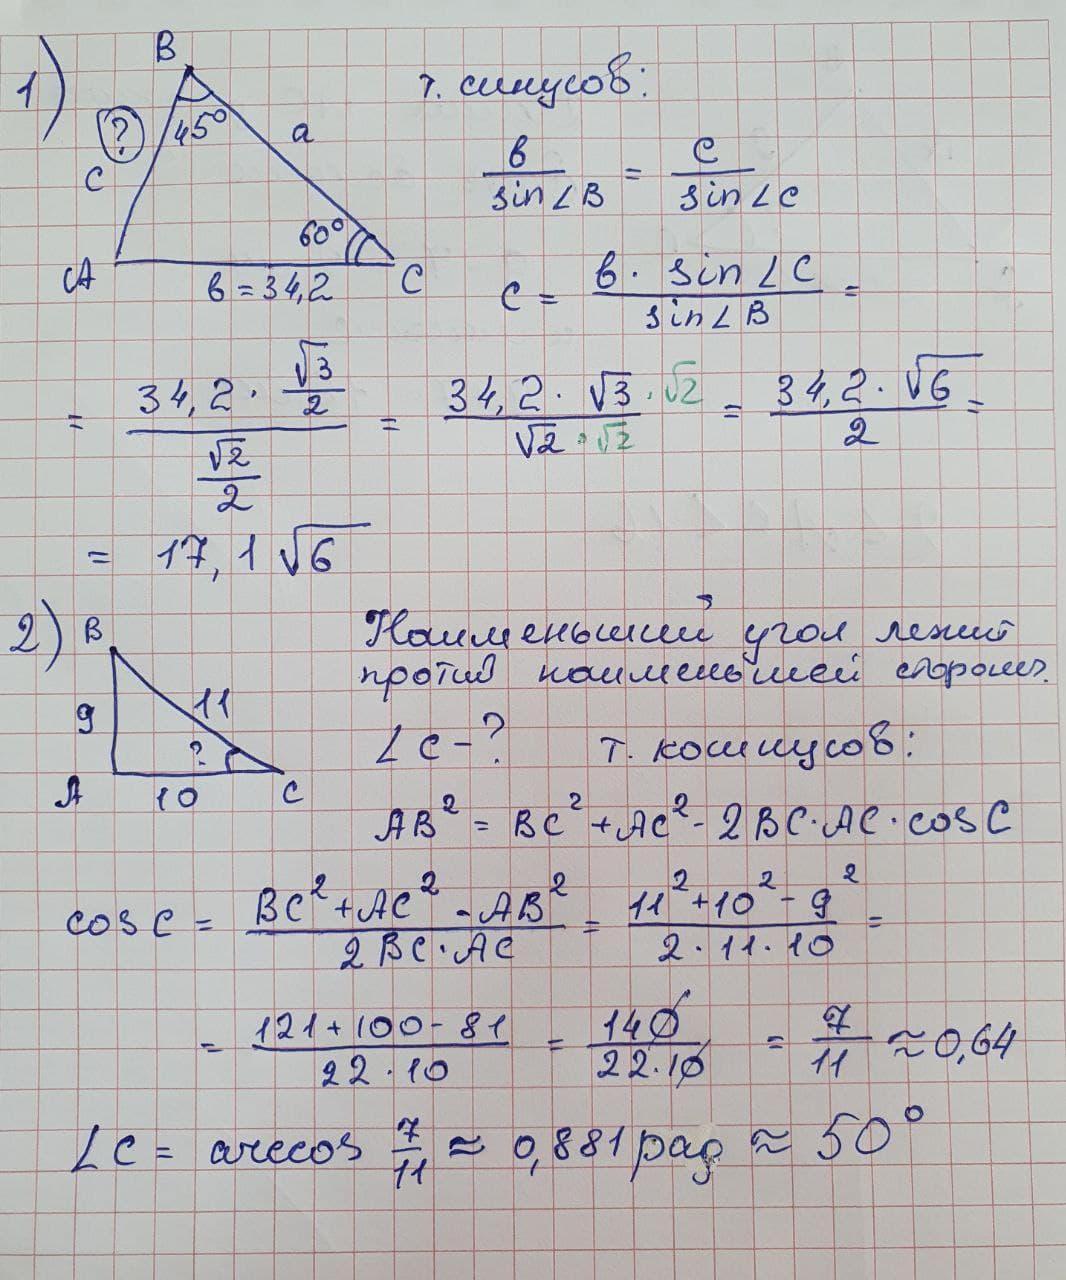 1)
B
т. синусов:
? 45° a
c
b/sin∠B = c/sin∠C
60°
A b = 34,2 C
c = b · sin∠C / sin∠B =
= 34,2 · √3/2 / √2/2 = 34,2 · √3 · √2 / √2 · √2 = 34,2 · √6 / 2 =
= 17,1 √6
2) B
Наименьший угол лежит
против наименьшей стороны.
9 11
∠C - ? т. косинусов:
?
A 10 C
AB² = BC² + AC² - 2BC · AC · cos C
cos C = BC² + AC² - AB² / 2BC · AC = 11² + 10² - 9² / 2 · 11 · 10 =
= 121 + 100 - 81 / 22 · 10 = 140 / 22 · 10 = 7/11 ≈ 0,64
∠C = arccos 7/11 ≈ 0,881 рад ≈ 50°